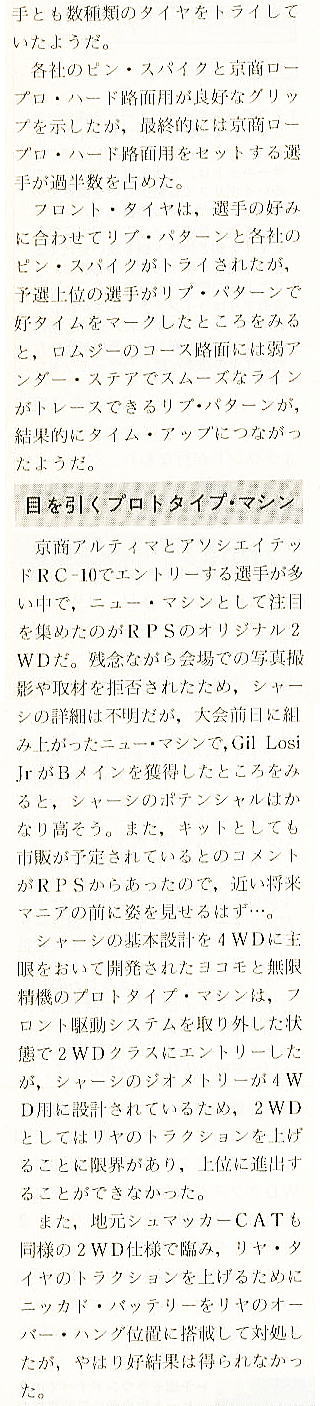 手とも数種類のタイヤをトライして
いたようだ。
各社のピン・スパイクと京商ロー
プロ・ハード路面用が良好なグリッ
プを示したが，最終的には京商ロー
プロ・ハード路面用をセットする選
手が過半数を占めた。
フロント・タイヤは，選手の好み
に合わせてリブ・パターンと各社の
ピン・スパイクがトライされたが，
予選上位の選手がリブ・パターンで
好タイムをマークしたところをみる
と，ロムジーのコース路面には弱ア
ンダー・ステアでスムーズなライン
がトレースできるリブ・パターンが，
結果的にタイム・アップにつながっ
たようだ。
目を引くプロトタイプ・マシン
京商アルティマとアソシエイテッ
ドＲＣ-10でエントリーする選手が多
い中で，ニュー・マシンとして注目
を集めたのがＲＰＳのオリジナル２
ＷＤだ。残念ながら会場での写真撮
影や取材を拒否されたため，シャー
シの詳細は不明だが，大会前日に組
み上がったニュー・マシンで，Gil Losi
JrがＢメインを獲得したところをみ
ると，シャーシのポテンシャルはか
なり高そう。また，キットとしても
市販が予定されているとのコメント
がＲＰＳからあったので，近い将来
マニアの前に姿を見せるはず…。
シャーシの基本設計を４ＷＤに主
眼をおいて開発されたヨコモと無限
精機のプロトタイプ・マシンは，フ
ロント駆動システムを取り外した状
態で２ＷＤクラスにエントリーした
が，シャーシのジオメトリーが４Ｗ
Ｄ用に設計されているため，２ＷＤ
としてはリヤのトラクションを上げ
ることに限界があり，上位に進出す
ることができなかった。
また，地元シュマッカーＣＡＴも
同様の２ＷＤ仕様で臨み，リヤ・タ
イヤのトラクションを上げるために
ニッカド・バッテリーをリヤのオー
バー・ハング位置に搭載して対処し
たが，やはり好結果は得られなかっ
た。